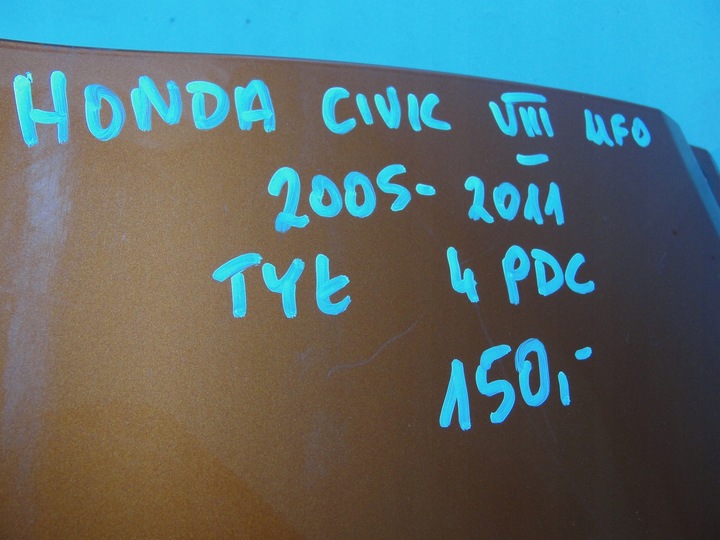 HONDA CIVIC VIII UFO
2005-2011
TYŁ 4 PDC
150,-